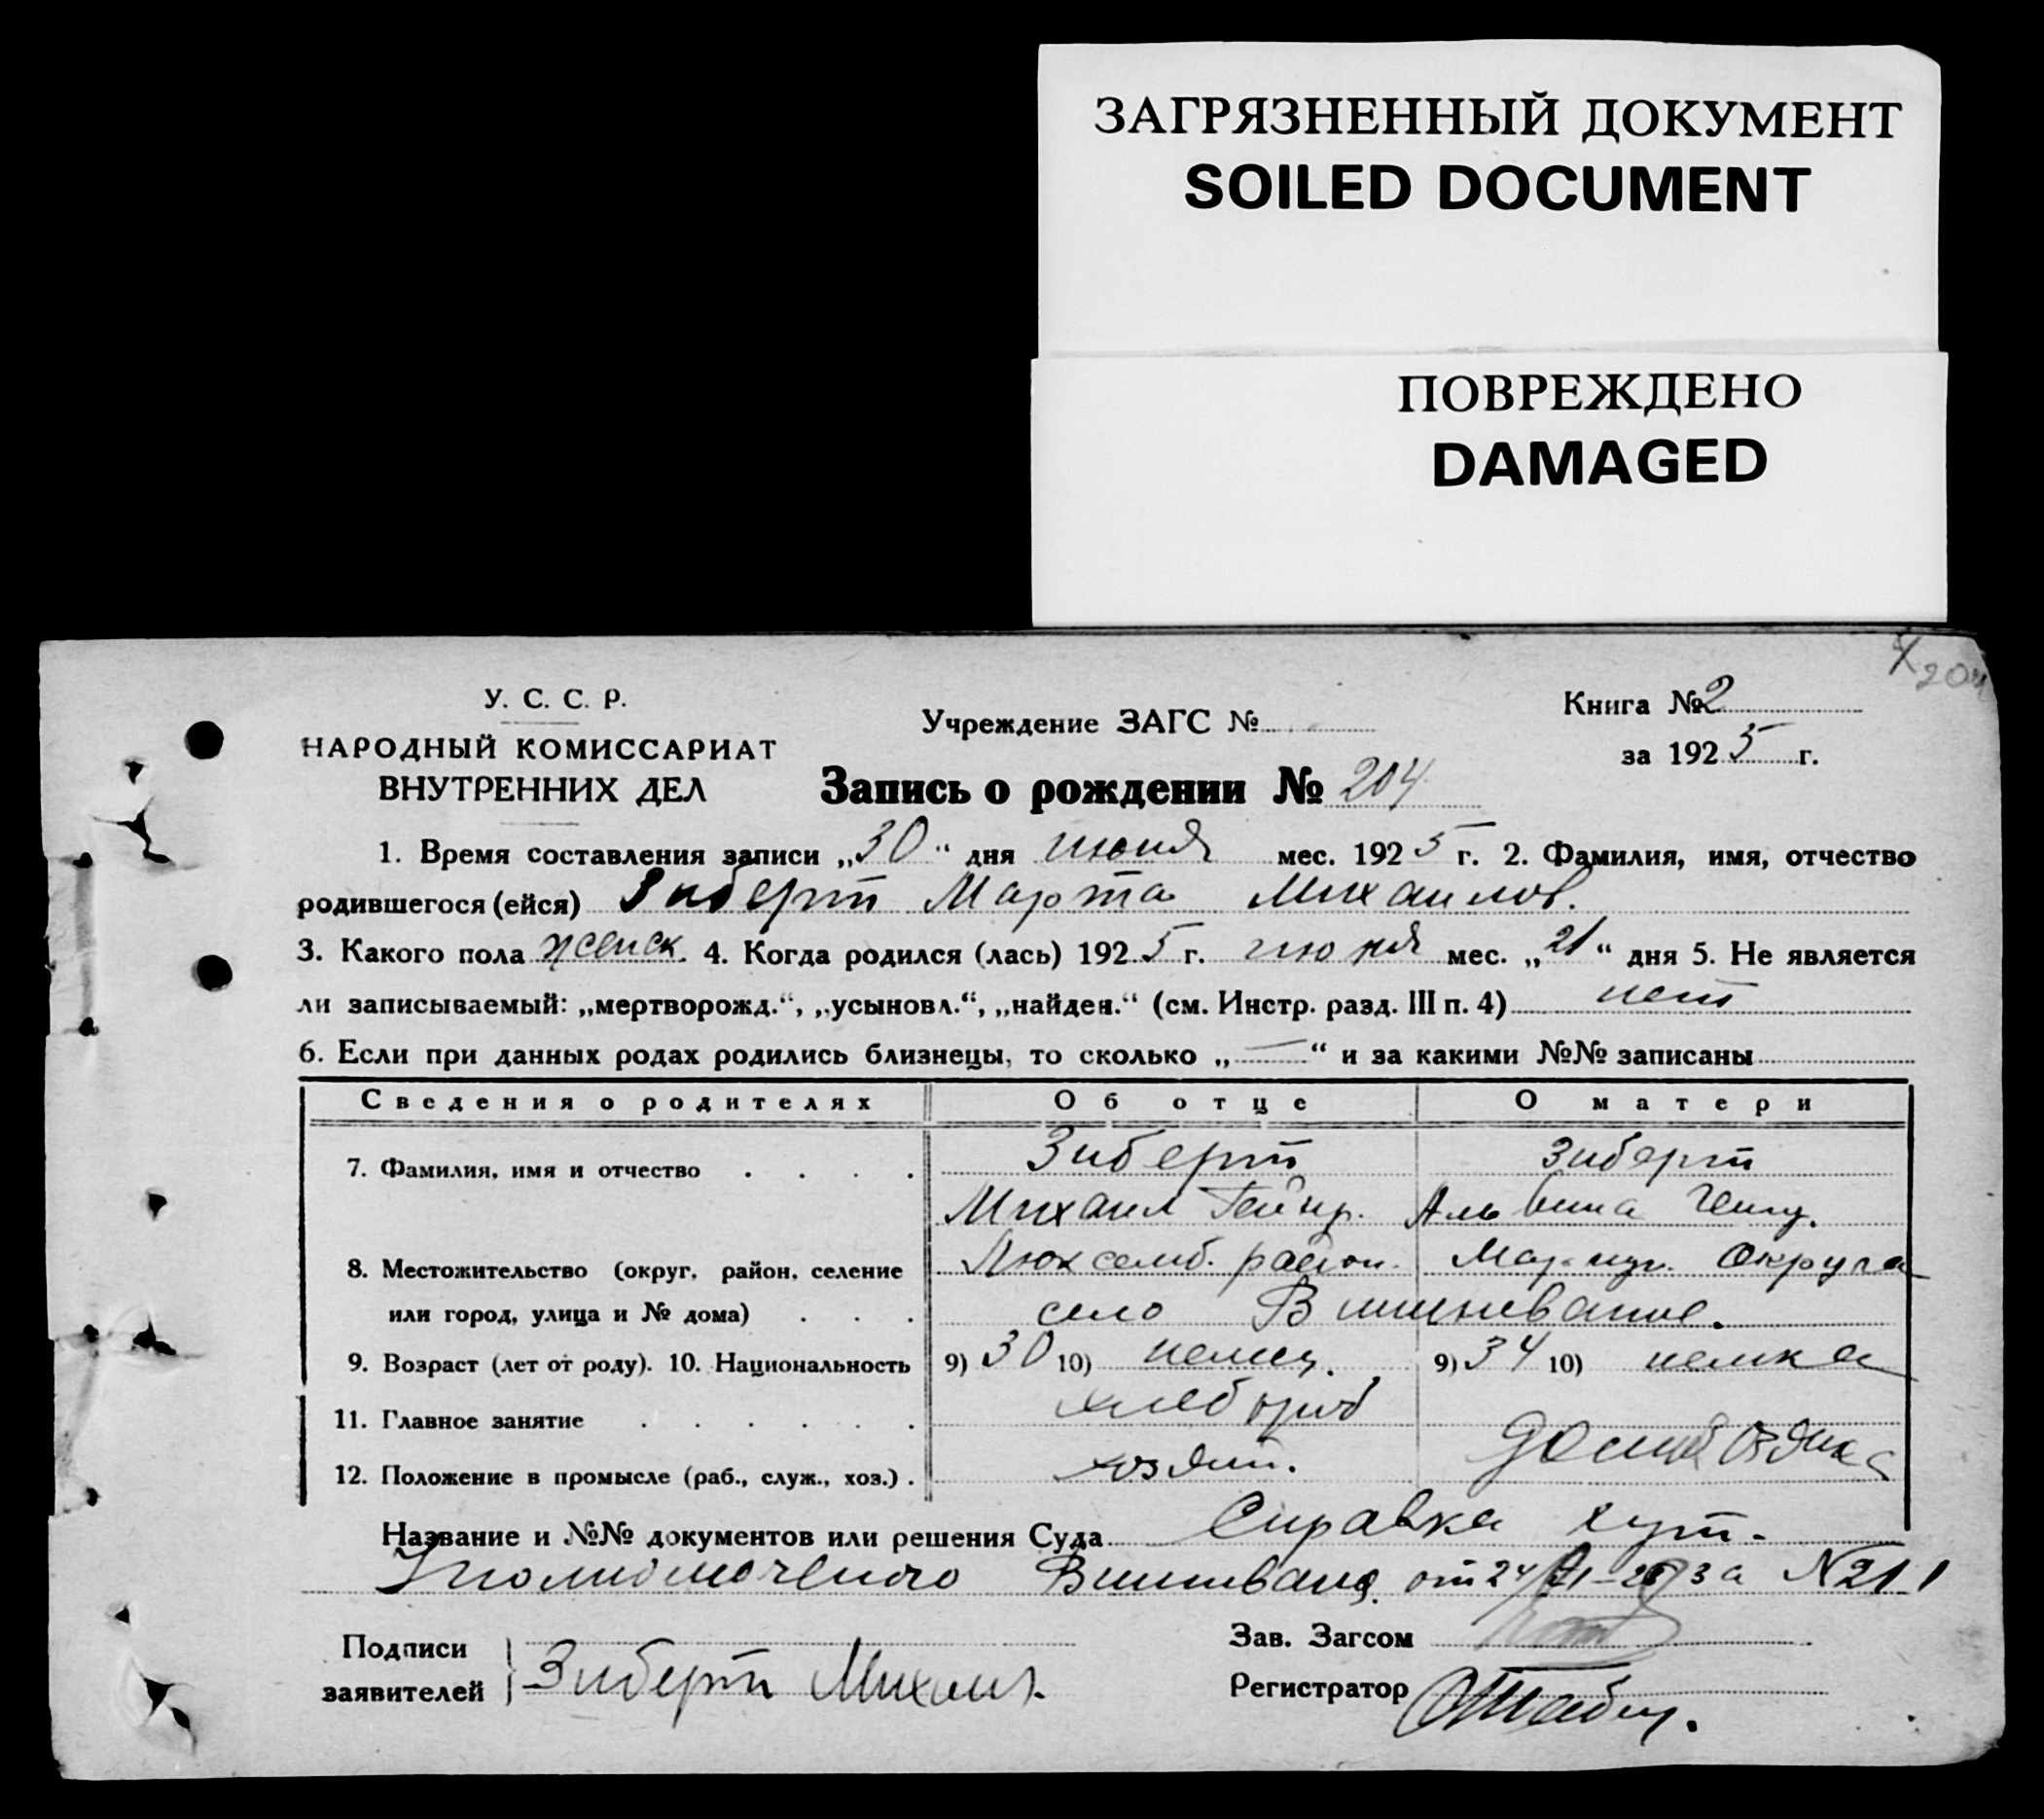 ЗАГРЯЗНЕННЫЙ ДОКУМЕНТ
SOILED DOCUMENT
ПОВРЕЖДЕНО
DAMAGED
204
У. С. С. Р.
НАРОДНЫЙ КОМИССАРИАТ
ВНУТРЕННИХ ДЕЛ
Учреждение ЗАГС №
Книга № 2
за 1925 г.
Запись о рождении № 204
1. Время составления записи „30“ дня июня мес. 1925 г. 2. Фамилия, имя, отчество
родившегося (ейся) Зиберт Марта Михаилов.
3. Какого пола женск. 4. Когда родился (лась) 1925 г. июня мес. „21“ дня 5. Не является
ли записываемый: „мертворожд.“, „усыновл.“, „найден.“ (см. Инстр. разд. III п. 4) нет
6. Если при данных родах родились близнецы, то сколько „—“ и за какими №№ записаны
Сведения о родителях Об отце О матери
7. Фамилия, имя и отчество Зиберт Зиберт
Михаил Гейнр. Альвина
8. Местожительство (округ, район, селение Люксемб. район. Округа
или город, улица и № дома) село
9. Возраст (лет от роду). 10. Национальность 9) 30 10) немец. 9) 34 10) немка
11. Главное занятие хлебороб
12. Положение в промысле (раб., служ., хоз.) хозяин. домохозяйка
Название и №№ документов или решения Суда Справка хут.
Уполномоченого от 24/VI-25 за №211
Подписи
заявителей Зиберт Михаил.
Зав. Загсом
Регистратор